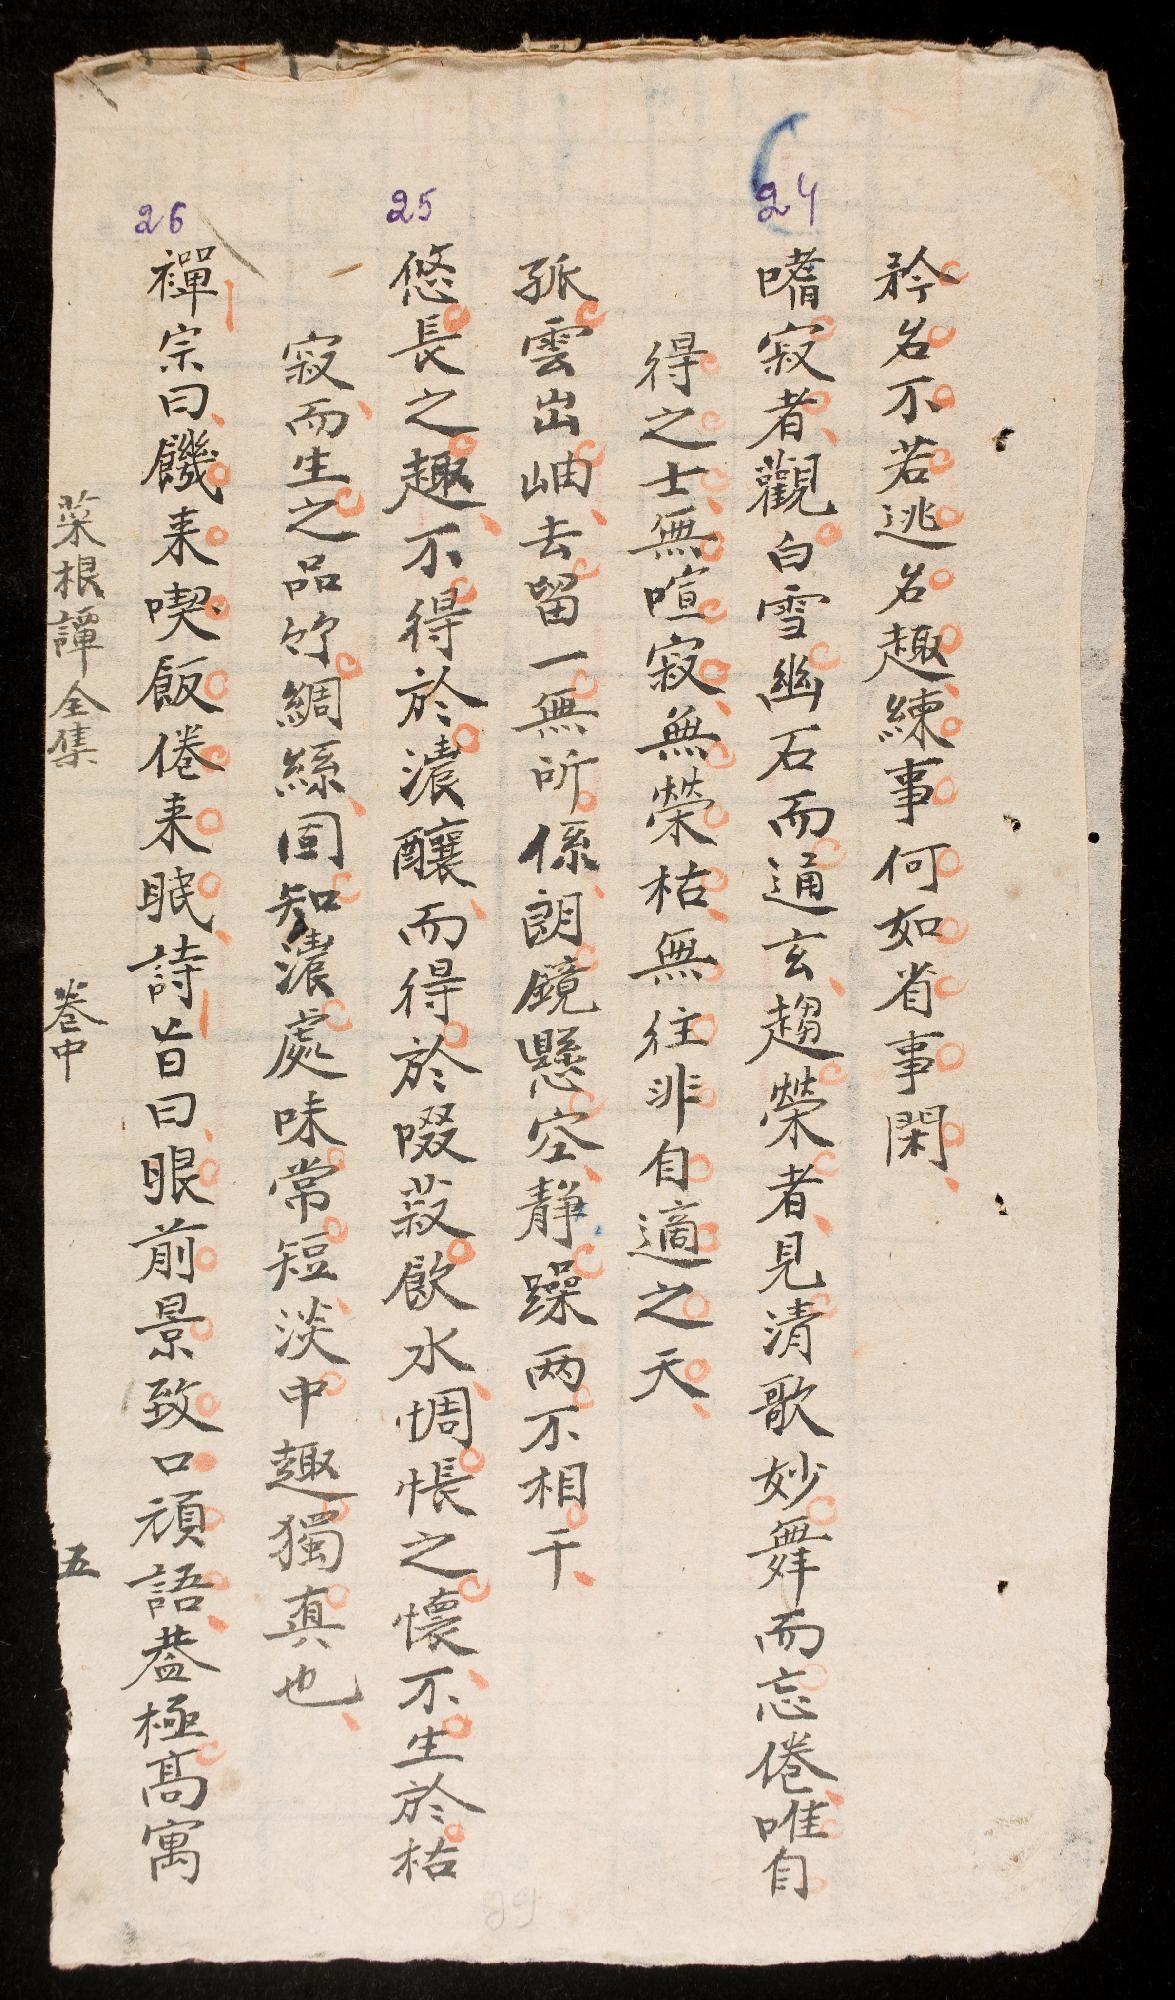 矜名不若逃名趣練事何如省事閑
24
嗜寂者觀白雪幽石而通玄趨榮者見清歌妙舞而忘倦唯自
得之士無喧寂無榮枯無往非自適之天
孤雲出岫去留一無所係朗鏡懸空静躁两不相干
25
悠長之趣不得於濃釀而得於啜菽飲水惆悵之懷不生於枯
寂而生之品竹綢絲固知濃處味常短淡中趣獨真也
26
禪宗曰饑来喫飯倦来眠詩旨曰眼前景致口頭語蓋極高寓
菜根譚全集
卷中
五